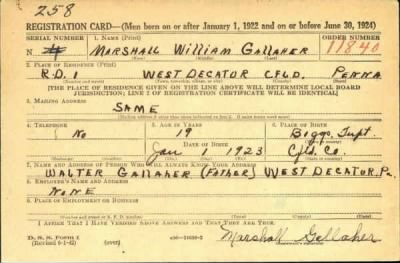 258
REGISTRATION CARD—(Men born on or after January 1, 1922 and on or before June 30, 1924)
SERIAL NUMBER 1. NAME (Print) ORDER NUMBER
N MARSHALL WILLIAM GALLAHER 11840
(First) (Middle) (Last)
2. PLACE OF RESIDENCE (Print)
R.D.1 WEST DECATOR CFLD. PENNA
(Number and street) (Town, township, village, or city) (County) (State)
[THE PLACE OF RESIDENCE GIVEN ON THE LINE ABOVE WILL DETERMINE LOCAL BOARD
JURISDICTION; LINE 2 OF REGISTRATION CERTIFICATE WILL BE IDENTICAL]
3. MAILING ADDRESS
SAME
4. TELEPHONE 5. AGE IN YEARS 6. PLACE OF BIRTH
No 19 Boggs Twpt
DATE OF BIRTH
JAN 1 1923 Cfld. Co.
7. NAME AND ADDRESS OF PERSON WHO WILL ALWAYS KNOW YOUR ADDRESS
WALTER GALLAHER (FATHER) WEST DECATOR, Pa.
8. EMPLOYER'S NAME AND ADDRESS
NONE
9. PLACE OF EMPLOYMENT OR BUSINESS
I AFFIRM THAT I HAVE VERIFIED ABOVE ANSWERS AND THAT THEY ARE TRUE.
D. S. S. Form 1
(Revised 6-1-42) (over) Marshall Gallaher